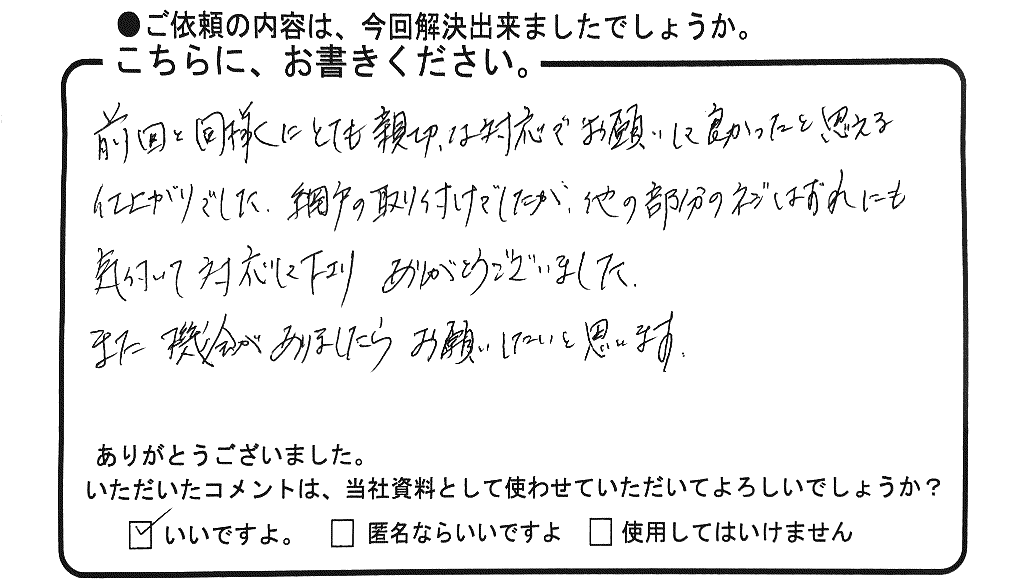 ●ご依頼の内容は、今回解決出来ましたでしょうか。
こちらに、お書きください。
前回と同様にとても親切な対応でお願いして良かったと思える
仕上がりでした。網戸の取り付けでしたが、他の部分のネジはずれにも
気付いて対応して下さり ありがとうございました。
また機会がありましたらお願いしたいと思います。
ありがとうございました。
いただいたコメントは、当社資料として使わせていただいてよろしいでしょうか？
☑ いいですよ。 □ 匿名ならいいですよ □ 使用してはいけません